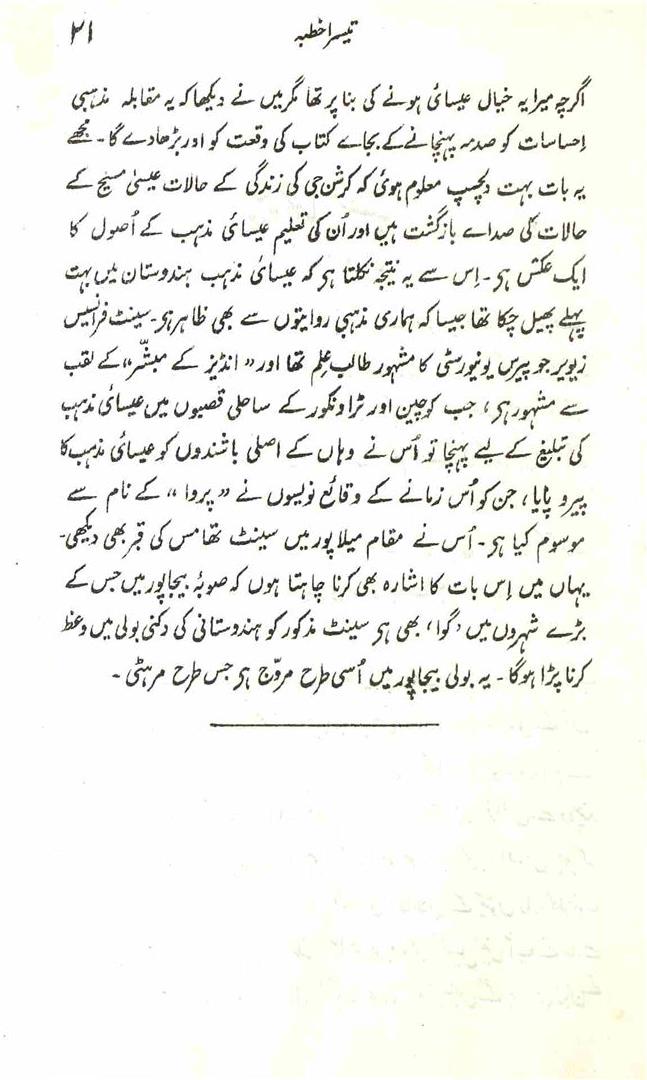 تیسرا خطبہ
۳۱
اگرچہ میرا یہ خیال عیسائی ہونے کی بنا پر تھا مگر میں نے دیکھا کہ یہ مقابلہ مذہبی
احساسات کو صدمہ پہنچانے کے بجاے کتاب کی وقعت کو اور بڑھادے گا۔ مجھے
یہ بات بہت دلچسپ معلوم ہوئی کہ کرشن جی کی زندگی کے حالات عیسیٰ مسیح کے
حالات کی صداے بازگشت ہیں اور اُن کی تعلیم عیسائی مذہب کے اُصول کا
ایک عکس ہی۔ اِس سے یہ نتیجہ نکلتا ہی کہ عیسائی مذہب ہندوستان میں بہت
پہلے پھیل چکا تھا جیسا کہ ہماری مذہبی روایتوں سے بھی ظاہر ہی۔ سینٹ فرانسیس
زیویر جو پیرس یونیورسٹی کا مشہور طالب علم تھا اور "انڈیز کے مبشّر" کے لقب
سے مشہور ہی، جب کوچین اور ٹراونکور کے ساحلی قصبوں میں عیسائی مذہب
کی تبلیغ کے لیے پہنچا تو اُس نے وہاں کے اصلی باشندوں کو عیسائی مذہب کا
پیرو پایا، جن کو اُس زمانے کے وقائع نویسوں نے "پروا" کے نام سے
موسوم کیا ہی۔ اُس نے مقام میلاپور میں سینٹ تھامس کی قبر بھی دیکھی۔
یہاں میں اِس بات کا اشارہ بھی کرنا چاہتا ہوں کہ صوبۂ بیجاپور میں جس کے
بڑے شہروں میں 'گوا' بھی ہی سینٹ مذکور کو ہندوستانی کی دکنی بولی میں وعظ
کرنا پڑا ہوگا۔ یہ بولی بیجاپور میں اُسی طرح مروّج ہی جس طرح مرہٹی۔